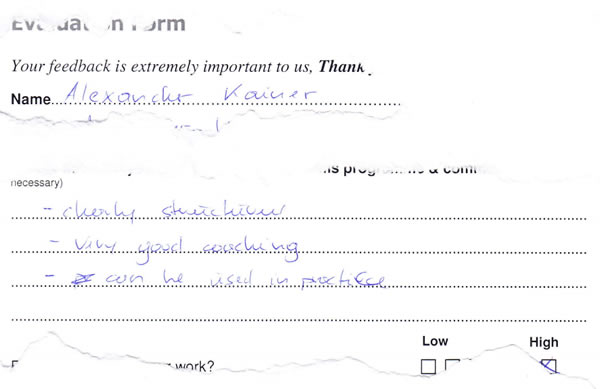 Evaluation Form
Your feedback is extremely important to us, Thank
Name Alexander Kainer
necessary)
- clearly structured
- very good coaching
- can be used in practice
Low High
work?